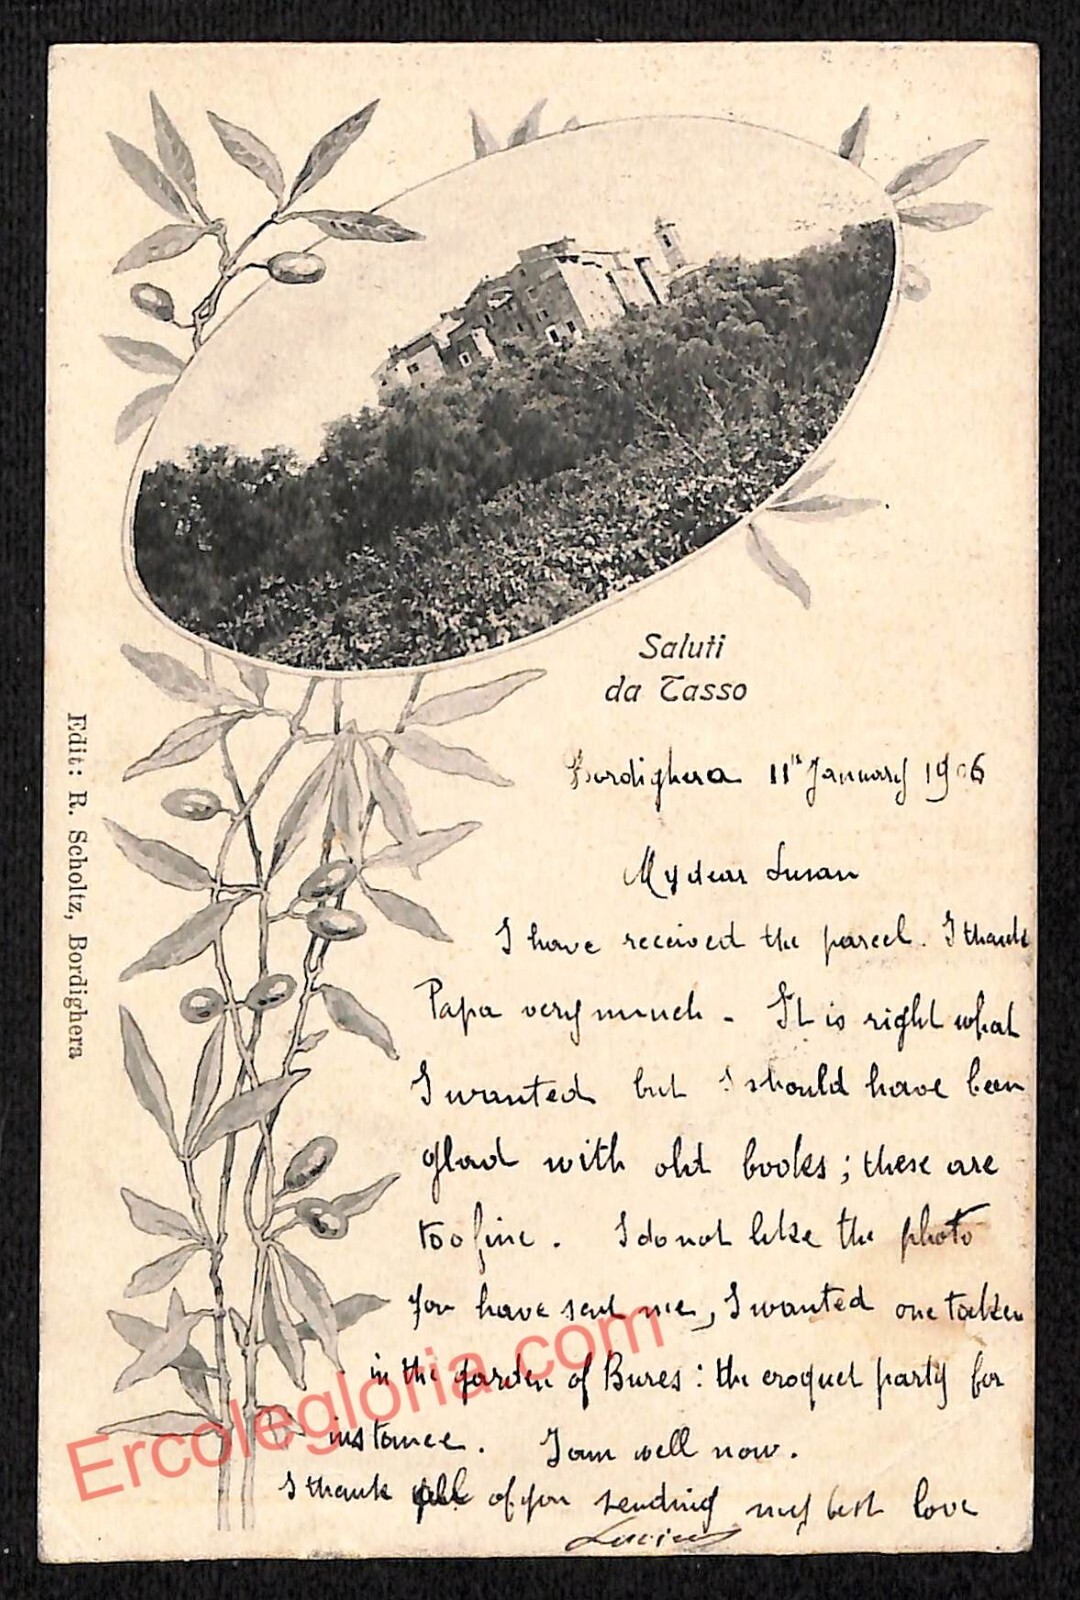 Saluti
da Tasso
Edit: R. Scholtz, Bordighera
Bordighera 11th January 1906
My dear Susan
I have received the parcel. I thank
Papa very much - It is right what
I wanted but I should have been
glad with old books; these are
too fine. I do not like the photo
you have sent me, I wanted one taken
in the garden of Bures: the croquet party for
instance. I am well now.
I thank all of you sending my best love
Lucien
Ercolegloria.com